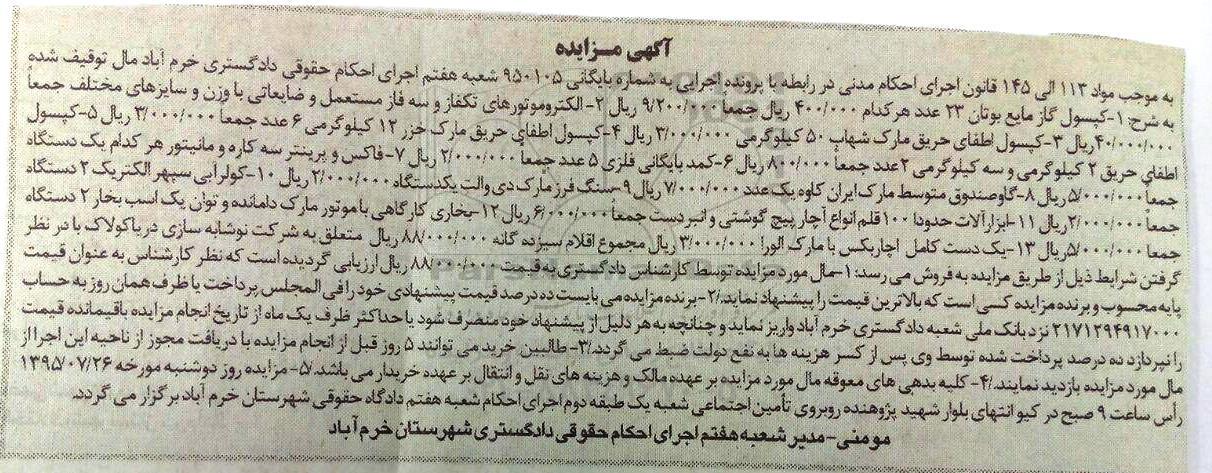 آگهی مزایده
به موجب مواد ۱۱۳ الی ۱۴۵ قانون اجرای احکام مدنی در رابطه با پرونده اجرایی به شماره بایگانی ۹۵۰۱۰۵ شعبه هفتم اجرای احکام حقوقی دادگستری خرم آباد مال توقیف شده
به شرح: ۱-کپسول گاز مایع بوتان ۲۳ عدد هر کدام ۴۰۰/۰۰۰ ریال جمعاً ۹/۲۰۰/۰۰۰ ریال ۲- الکتروموتورهای تکفاز و سه فاز مستعمل و ضایعاتی با وزن و سایزهای مختلف جمعاً
۴۰/۰۰۰/۰۰۰ ریال ۳-کپسول اطفای حریق مارک شهاب ۵۰ کیلوگرمی ۳/۰۰۰/۰۰۰ ریال ۴-کپسول اطفای حریق مارک خزر ۱۲ کیلوگرمی ۶ عدد جمعاً ۳/۰۰۰/۰۰۰ ریال ۵-کپسول
اطفای حریق ۲ کیلوگرمی و سه کیلوگرمی ۲ عدد جمعاً ۸۰۰/۰۰۰ ریال ۶-کمد بایگانی فلزی ۵ عدد جمعاً ۲/۰۰۰/۰۰۰ ریال ۷-فاکس و پرینتر سه کاره و مانیتور هر کدام یک دستگاه
جمعاً ۵/۰۰۰/۰۰۰ ریال ۸-گاوصندوق متوسط مارک ایران کاوه یک عدد ۷/۰۰۰/۰۰۰ ریال ۹-سنگ فرز مارک دی والت یکدستگاه ۲/۰۰۰/۰۰۰ ریال ۱۰-کولر آبی سپهر الکتریک ۲ دستگاه
جمعاً ۲/۰۰۰/۰۰۰ ریال ۱۱-ابزارآلات حدودا ۱۰۰ قلم انواع آچار پیچ گوشتی و انبردست جمعاً ۶/۰۰۰/۰۰۰ ریال ۱۲-بخاری کارگاهی با موتور مارک دامانده و توان یک اسب بخار ۲ دستگاه
جمعا ۵/۰۰۰/۰۰۰ ریال ۱۳-یک دست کامل آچاربکس با مارک الورا ۳/۰۰۰/۰۰۰ ریال مجموع اقلام سیزده گانه ۸۸/۰۰۰/۰۰۰ ریال متعلق به شرکت نوشابه سازی دریاکولاک با در نظر
گرفتن شرایط ذیل از طریق مزایده به فروش می رسد: ۱-مال مورد مزایده توسط کارشناس دادگستری به قیمت ۸۸/۰۰۰/۰۰۰ ریال ارزیابی گردیده است که نظر کارشناس به عنوان قیمت
پایه محسوب و برنده مزایده کسی است که بالاترین قیمت را پیشنهاد نماید./۲-برنده مزایده می بایست ده درصد قیمت پیشنهادی خود را فی المجلس پرداخت یا ظرف همان روز به حساب
۲۱۷۱۲۹۴۹۱۷۰۰۰ نزد بانک ملی شعبه دادگستری خرم آباد واریز نماید و چنانچه به هر دلیل از پیشنهاد خود منصرف شود یا حداکثر ظرف یک ماه از تاریخ انجام مزایده باقیمانده قیمت
را نپردازد ده درصد پرداخت شده توسط وی پس از کسر هزینه ها به نفع دولت ضبط می گردد./۳-طالبین خرید می توانند ۵ روز قبل از انجام مزایده با دریافت مجوز از ناحیه این اجرا از
مال مورد مزایده بازدید نمایند./۴- کلیه بدهی های معوقه مال مورد مزایده بر عهده مالک و هزینه های نقل و انتقال بر عهده خریدار می باشد./۵- مزایده روز دوشنبه مورخه ۱۳۹۵/۰۷/۲۶
رأس ساعت ۹ صبح در کیو انتهای بلوار شهید پژوهنده روبروی تأمین اجتماعی شعبه یک طبقه دوم اجرای احکام شعبه هفتم دادگاه حقوقی شهرستان خرم آباد برگزار می گردد.
مومنی-مدیر شعبه هفتم اجرای احکام حقوقی دادگستری شهرستان خرم آباد